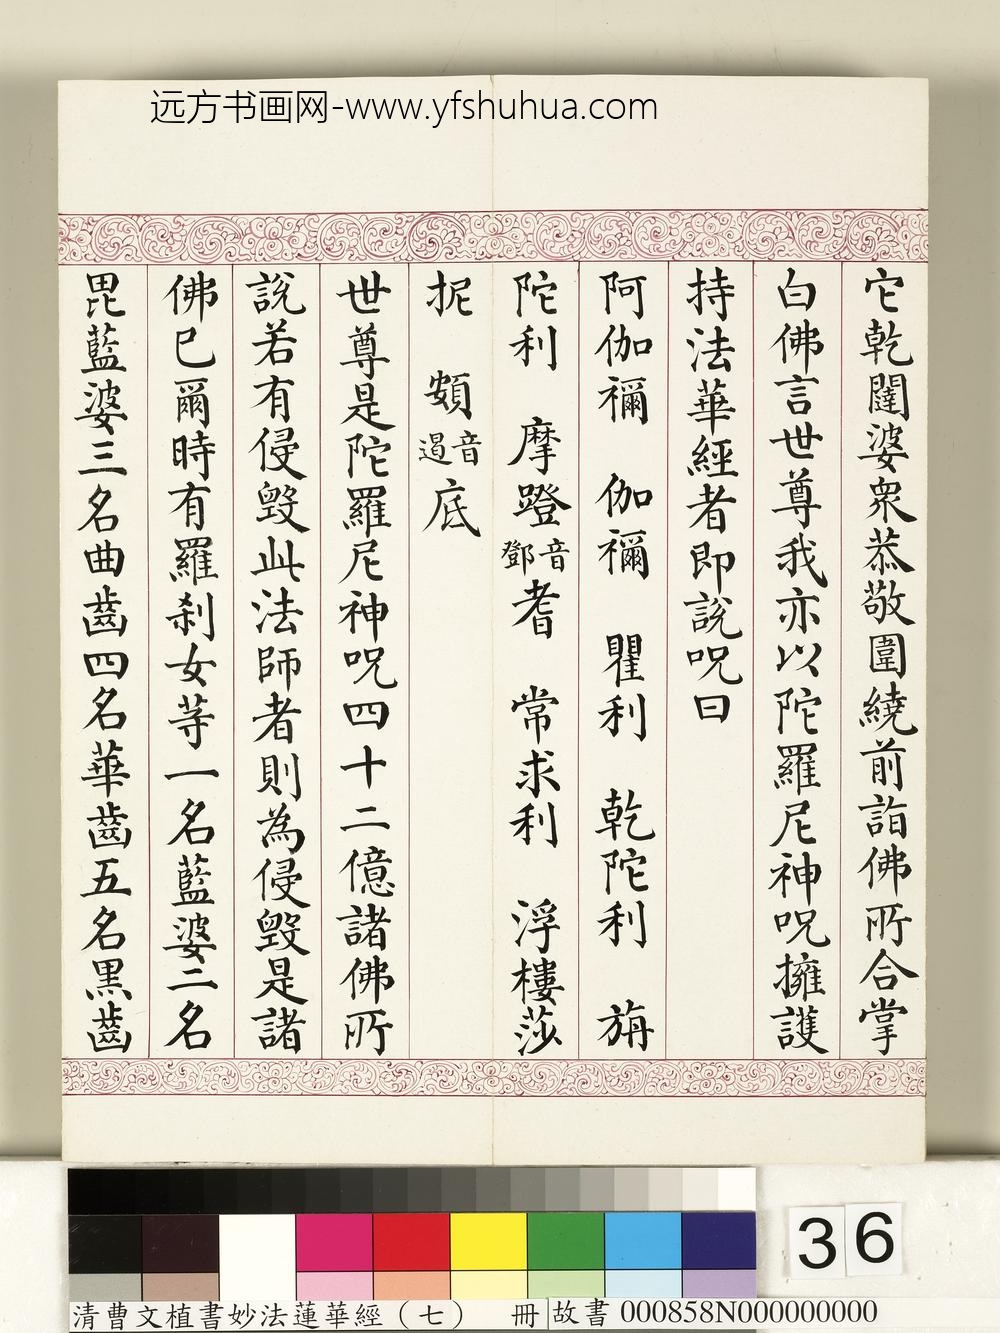 远方书画网-www.yfshuhua.com
它乾闥婆眾恭敬圍繞前詣佛所合掌
白佛言世尊我亦以陀羅尼神呪擁護
持法華經者即說呪曰
阿伽禰 伽禰 瞿利 乾陀利 旃
陀利 摩蹬音鄧耆 常求利 浮樓莎
抳 頞音遏底
世尊是陀羅尼神呪四十二億諸佛所
說若有侵毀此法師者則為侵毀是諸
佛已爾時有羅剎女等一名藍婆二名
毘藍婆三名曲齒四名華齒五名黑齒
36
清曹文植書妙法蓮華經（七） 冊 故書 000858N000000000